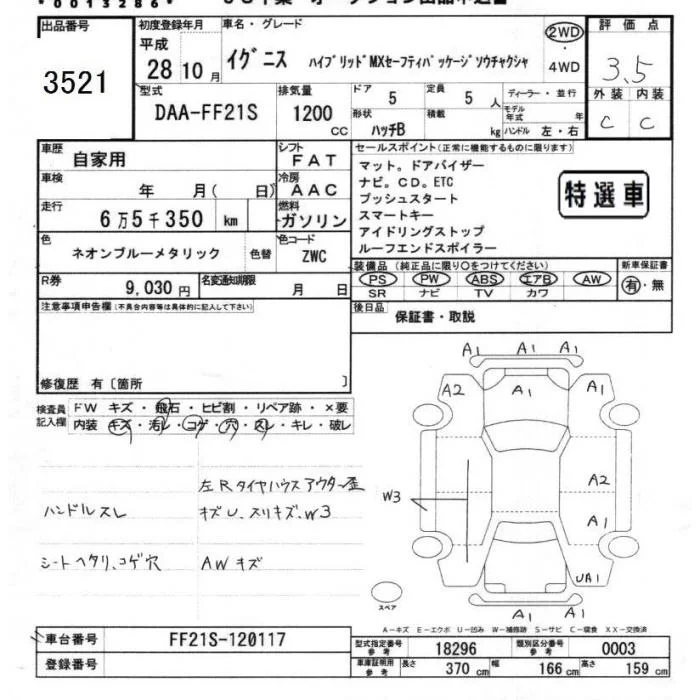 *0013286*
出品番号
3521
初度登録年月
平成
28 10 月
車名・グレード
イグニス ハイブリッドMXセーフティパッケージソウチャクシャ
2WD
・
4WD
評価点
3.5
外装 内装
C C
型式
DAA-FF21S
排気量
1200 CC
ドア
5
定員
5 人
ディーラー・並行
形状
ハッチB
積載
kg
モデル年式 年
ハンドル 左・右
車歴
自家用
シフト
FAT
車検
年 月( 日)
冷房
AAC
走行
6万5千350 km
燃料
ガソリン
色
ネオンブルーメタリック
色替
色コード
ZWC
R券
9,030 円
名変通知期限
月 日
セールスポイント(正常に機能するものに限ります)
マット。ドアバイザー
ナビ。CD。ETC
プッシュスタート
スマートキー
アイドリングストップ
ルーフエンドスポイラー
特選車
装備品(純正品に限り○をつけてください)
PS PW ABS エアB AW
SR ナビ TV カワ
新車保証書
有・無
後日品
保証書・取説
注意事項申告欄(不具合内容等は具体的に記入して下さい)
修復歴 有〔箇所 〕
検査員記入欄
FW キズ・飛石・ヒビ割・リペア跡・×要
内装 キズ・汚レ・コゲ・穴・スレ・キレ・破レ
左Rタイヤハウスアウター歪
ハンドルスレ
キズU、スリキズ、W3
シートヘタリ、コゲ穴
AWキズ
A1 A1 A1
A2 A1 A1
W3
A2
A1
UA1
A1 A1
スペア
A-キズ E-エクボ U-凹み W-補修跡 S-サビ C-腐食 XX-交換済
車台番号
FF21S-120117
登録番号
型式指定番号
参考
18296
類別区分番号
参考
0003
車庫証明用
参考
長さ
370 cm
幅
166 cm
高さ
159 cm